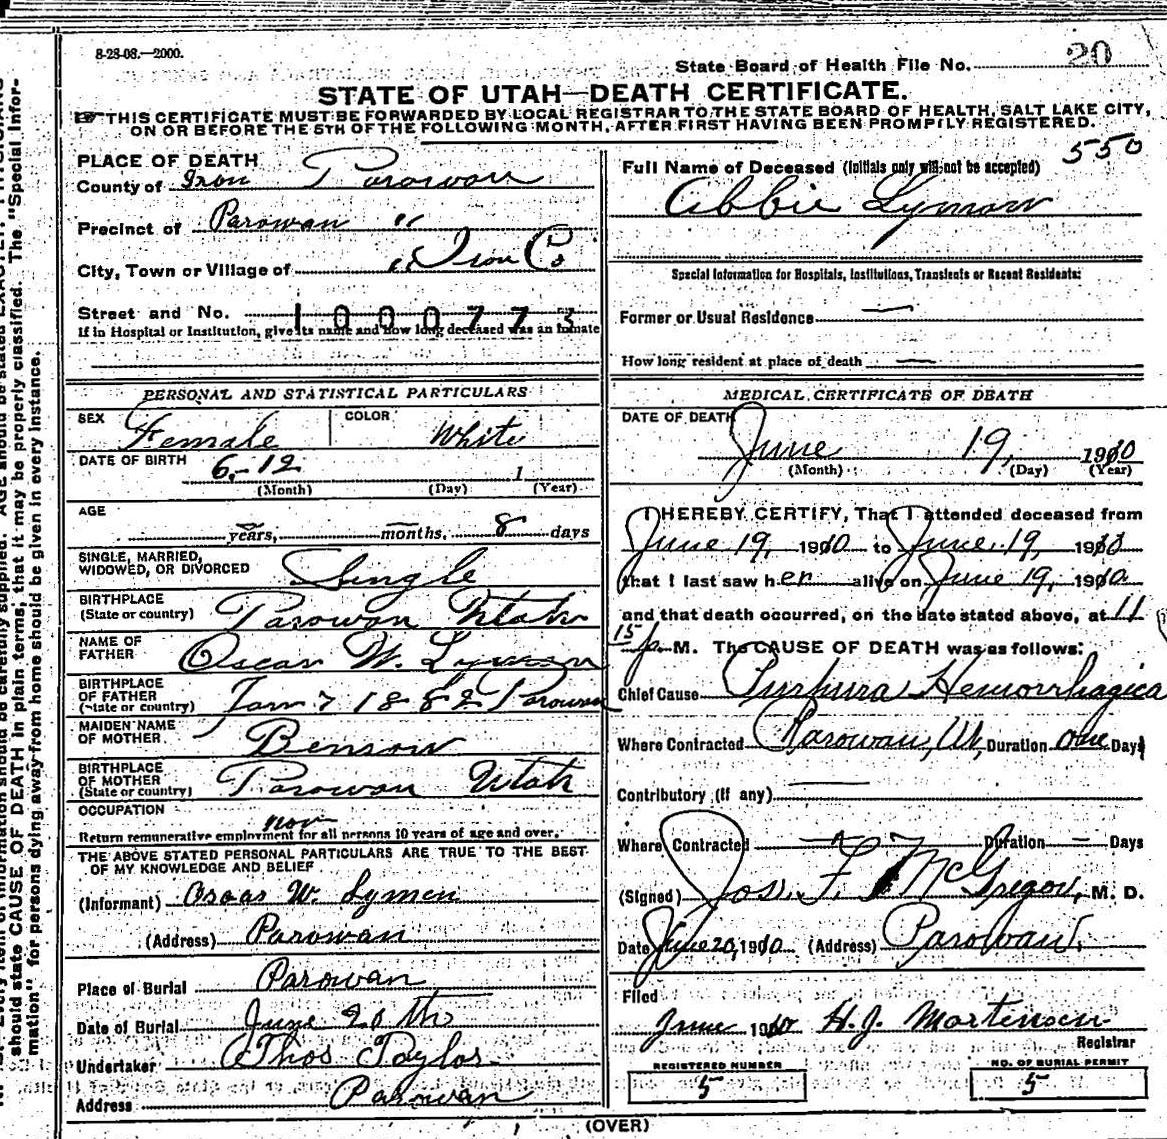 8-28-08.—2000.
State Board of Health File No. 20
STATE OF UTAH—DEATH CERTIFICATE.
THIS CERTIFICATE MUST BE FORWARDED BY LOCAL REGISTRAR TO THE STATE BOARD OF HEALTH, SALT LAKE CITY,
ON OR BEFORE THE 5TH OF THE FOLLOWING MONTH, AFTER FIRST HAVING BEEN PROMPTLY REGISTERED.
PLACE OF DEATH
County of Iron Parowan
Precinct of Parowan "
City, Town or Village of " Iron Co
Street and No. 1000773
If in Hospital or Institution, give its name and how long deceased was an inmate
PERSONAL AND STATISTICAL PARTICULARS
SEX Female COLOR White
DATE OF BIRTH 6-12 1
(Month) (Day) (Year)
AGE
— years, — months, 8 days
SINGLE, MARRIED,
WIDOWED, OR DIVORCED Single
BIRTHPLACE
(State or country) Parowan Utah
NAME OF
FATHER Oscar W. Lyman
BIRTHPLACE
OF FATHER
(State or country) Jan 7 1882 Parowan
MAIDEN NAME
OF MOTHER Benson
BIRTHPLACE
OF MOTHER
(State or country) Parowan Utah
OCCUPATION
non
Return remunerative employment for all persons 10 years of age and over.
THE ABOVE STATED PERSONAL PARTICULARS ARE TRUE TO THE BEST
OF MY KNOWLEDGE AND BELIEF
(Informant) Oscar W. Lymen
(Address) Parowan
Place of Burial Parowan
Date of Burial June 20th
Undertaker Thos Taylor
Address Parowan
550
Full Name of Deceased (Initials only will not be accepted)
Abbie Lyman
Special Information for Hospitals, Institutions, Transients or Recent Residents:
Former or Usual Residence —
How long resident at place of death —
MEDICAL CERTIFICATE OF DEATH
DATE OF DEATH
June 19, 1910
(Month) (Day) (Year)
I HEREBY CERTIFY, That I attended deceased from
June 19, 1910 to June 19, 1910
that I last saw her alive on June 19, 1910
and that death occurred, on the date stated above, at 11
15 p. M. The CAUSE OF DEATH was as follows:
Chief Cause Purpura Hemorrhagica
Where Contracted Parowan, Ut, Duration one Days
Contributory (if any) —
Where Contracted — Duration — Days
(Signed) Jos. F. McGregor, M. D.
Date June 20, 1910 (Address) Parowan,
Filed
June 1910 H.J. Mortensen
Registrar
REGISTERED NUMBER
5
NO. OF BURIAL PERMIT
5
(OVER)
should state CAUSE OF DEATH in plain terms, that it may be properly classified. The "Special Infor-
mation" for persons dying away from home should be given in every instance.